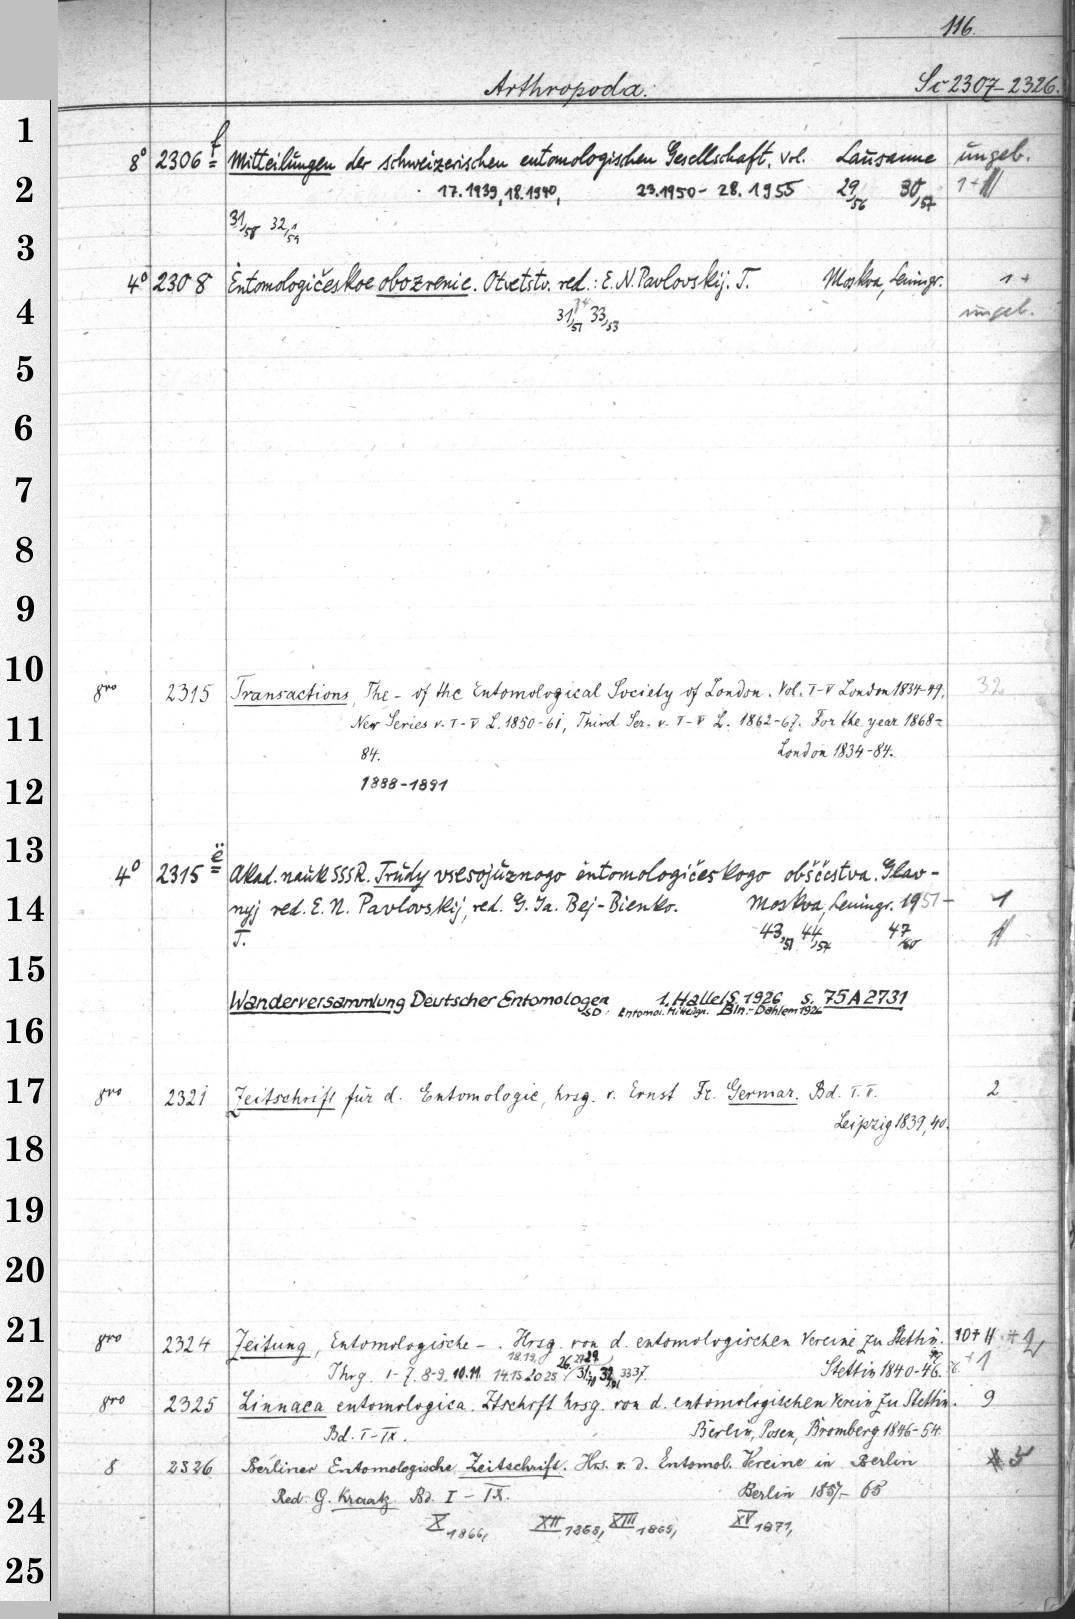 116.
Arthropoda. Sc 2307-2326.
1
8° 2306 f Mitteilungen der schweizerischen entomologischen Gesellschaft. Vol. Lausanne ungeb.
2
17.1939, 18.1940, 23.1950- 28.1955 29,56 30,57 1+
31,58 32,59
3
4° 2308 Èntomologičeskoe obozrenie. Otvetstv. red.: E. N. Pavlovskij. T. Moskva, Leningr. 1+
4
31,51 33,53 ungeb.
5
6
7
8
9
10
8vo 2315 Transactions, The - of the Entomological Society of London. Vol. I-V London 1834-49. 32
11
New Series v. I-V L. 1850-61, Third Ser. v. I-V L. 1862-67. For the year 1868-
84. London 1834-84.
12
1888-1891
13
4° 2315 ë Akad. nauk SSSR. Trudy vsesojuznogo èntomologičeskogo obščestva. Glav-
14
nyj red. E. N. Pavlovskij, red. G. Ja. Bej-Bienko. Moskva, Leningr. 1951- 1
T. 43,51 44,54 47,60
15
Wanderversammlung Deutscher Entomologen 1. Halle/S. 1926 s. 75 A 2731
SD: Entomol. Mitteilgn. Bln.-Dahlem 1926
16
17
8vo 2321 Zeitschrift für d. Entomologie, hrsg. v. Ernst Fr. Germar. Bd. I. II. 2
18
Leipzig 1839, 40.
19
20
21
8vo 2324 Zeitung, Entomologische - . Hrsg. von d. entomologischen Vereine zu Stettin. 10+
18.19. 26. 27 29
Jhrg. 1-7. 8-9. 10.11 14.15 20 25 33 37. Stettin 1840-46. +1
22
8vo 2325 Linnaea entomologica. Ztschrft hrsg. von d. entomologischen Verein zu Stettin. 9
Bd. I-IX. Berlin, Posen, Bromberg 1846-54.
23
8 2326 Berliner Entomologische Zeitschrift. Hrs. v. d. Entomol. Vereine in Berlin 5
Red. G. Kraatz Bd. I - IX. Berlin 1857- 65
24
X 1866, XII 1868, XIII 1869, XV 1871,
25